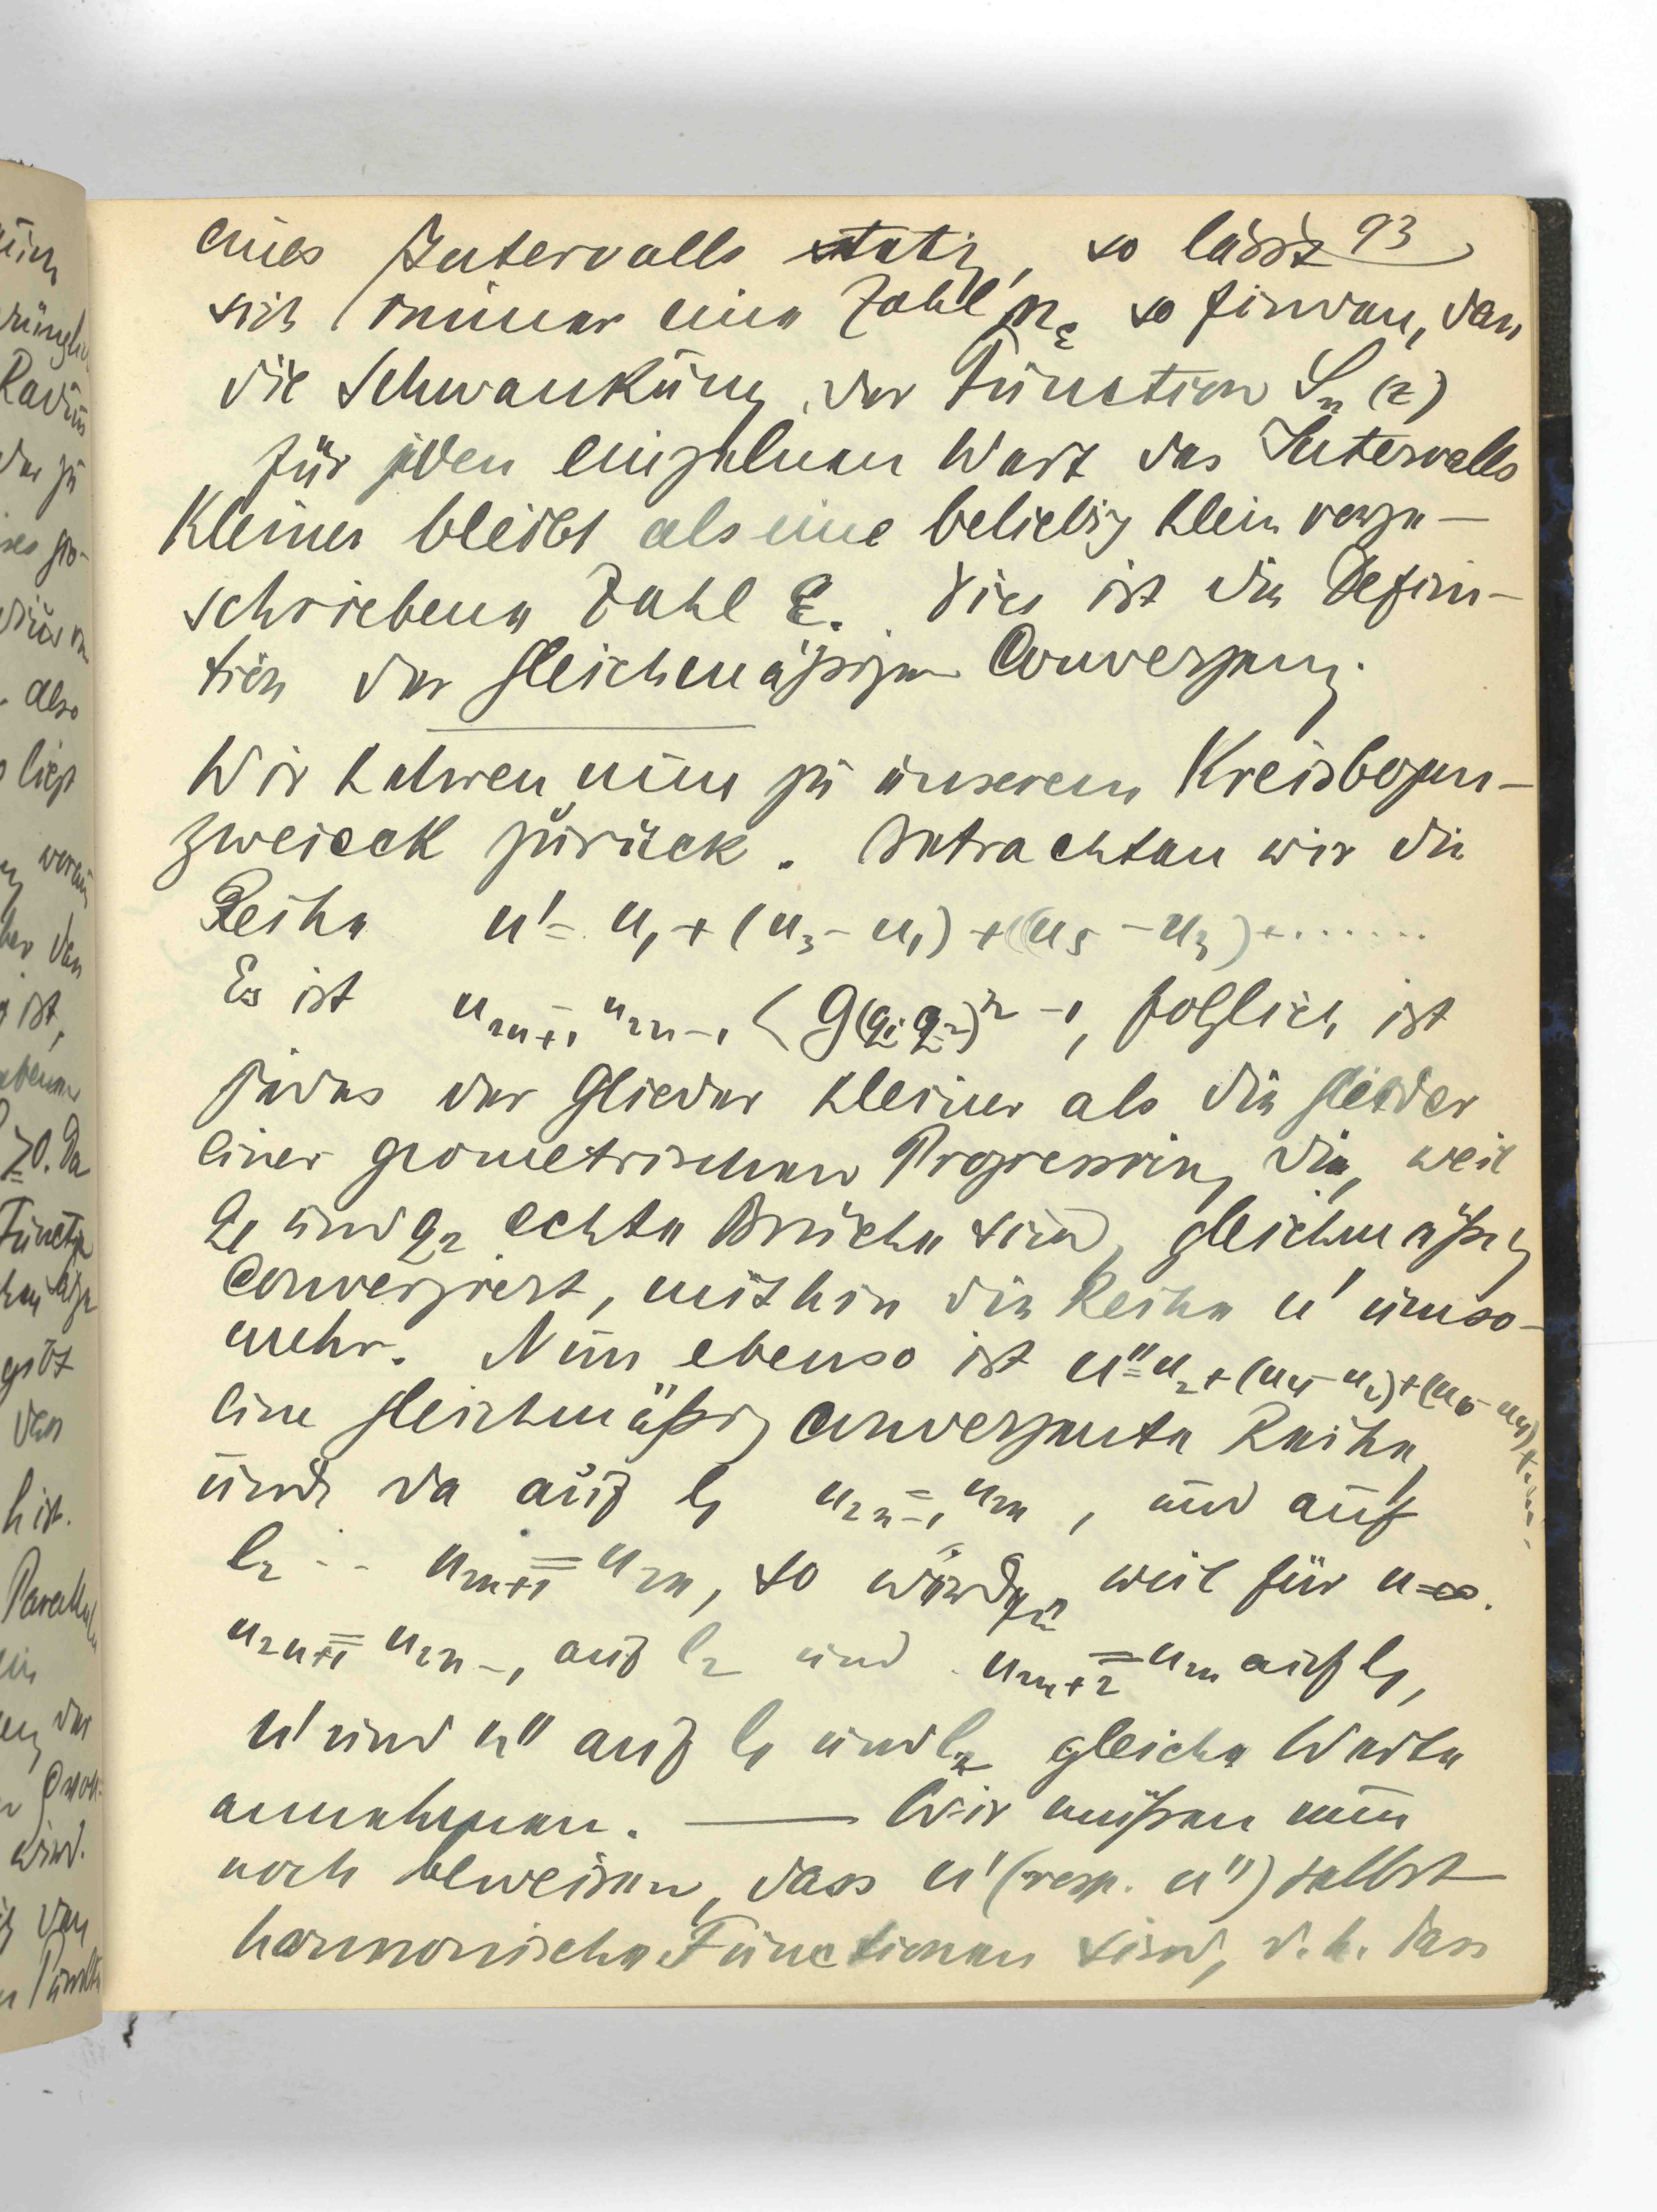 93
eines Intervalls stetig, so lässt
sich immer eine Zahl n_ε so finden, dass
die Schwankung der Function S_n(z)
für jeden einzelnen Wert des Intervalls
kleiner bleibt als eine beliebig klein vorge-
schriebene Zahl ε. Dies ist die Defini-
tion der gleichmäßigen Convergenz.
Wir kehren nun zu unserem Kreisbogen-
zweieck zurück. Betrachten wir die
Reihe u' = u_1 + (u_3 - u_1) + (u_5 - u_3) + .......
Es ist u_{2n+1} - u_{2n-1} < G(q_1 q_2)^{n-1}, folglich ist
jedes der Glieder kleiner als die Glieder
einer geometrischen Progression, die, weil
q_1 und q_2 echte Brüche sind, gleichmäßig
convergiert, mithin die Reihe u' umso-
mehr. Nun ebenso ist u'' = u_2 + (u_4 - u_2) + (u_6 - u_4) + .....
eine gleichmäßig convergente Reihe,
und da auf l_1 u_{2n-1} = u_{2n}, und auf
l_2 -- u_{2n+1} = u_{2n}, so würde, weil für n=∞.
u_{2n+1} = u_{2n-1} auf l_2 und u_{2n+2} = u_{2n} auf l_1,
u' und u'' auf l_1 und l_2 gleiche Werte
annehmen. — Wir müßen nun
noch beweisen, dass u' (resp. u'') selbst
harmonische Functionen sind, d.h. dass